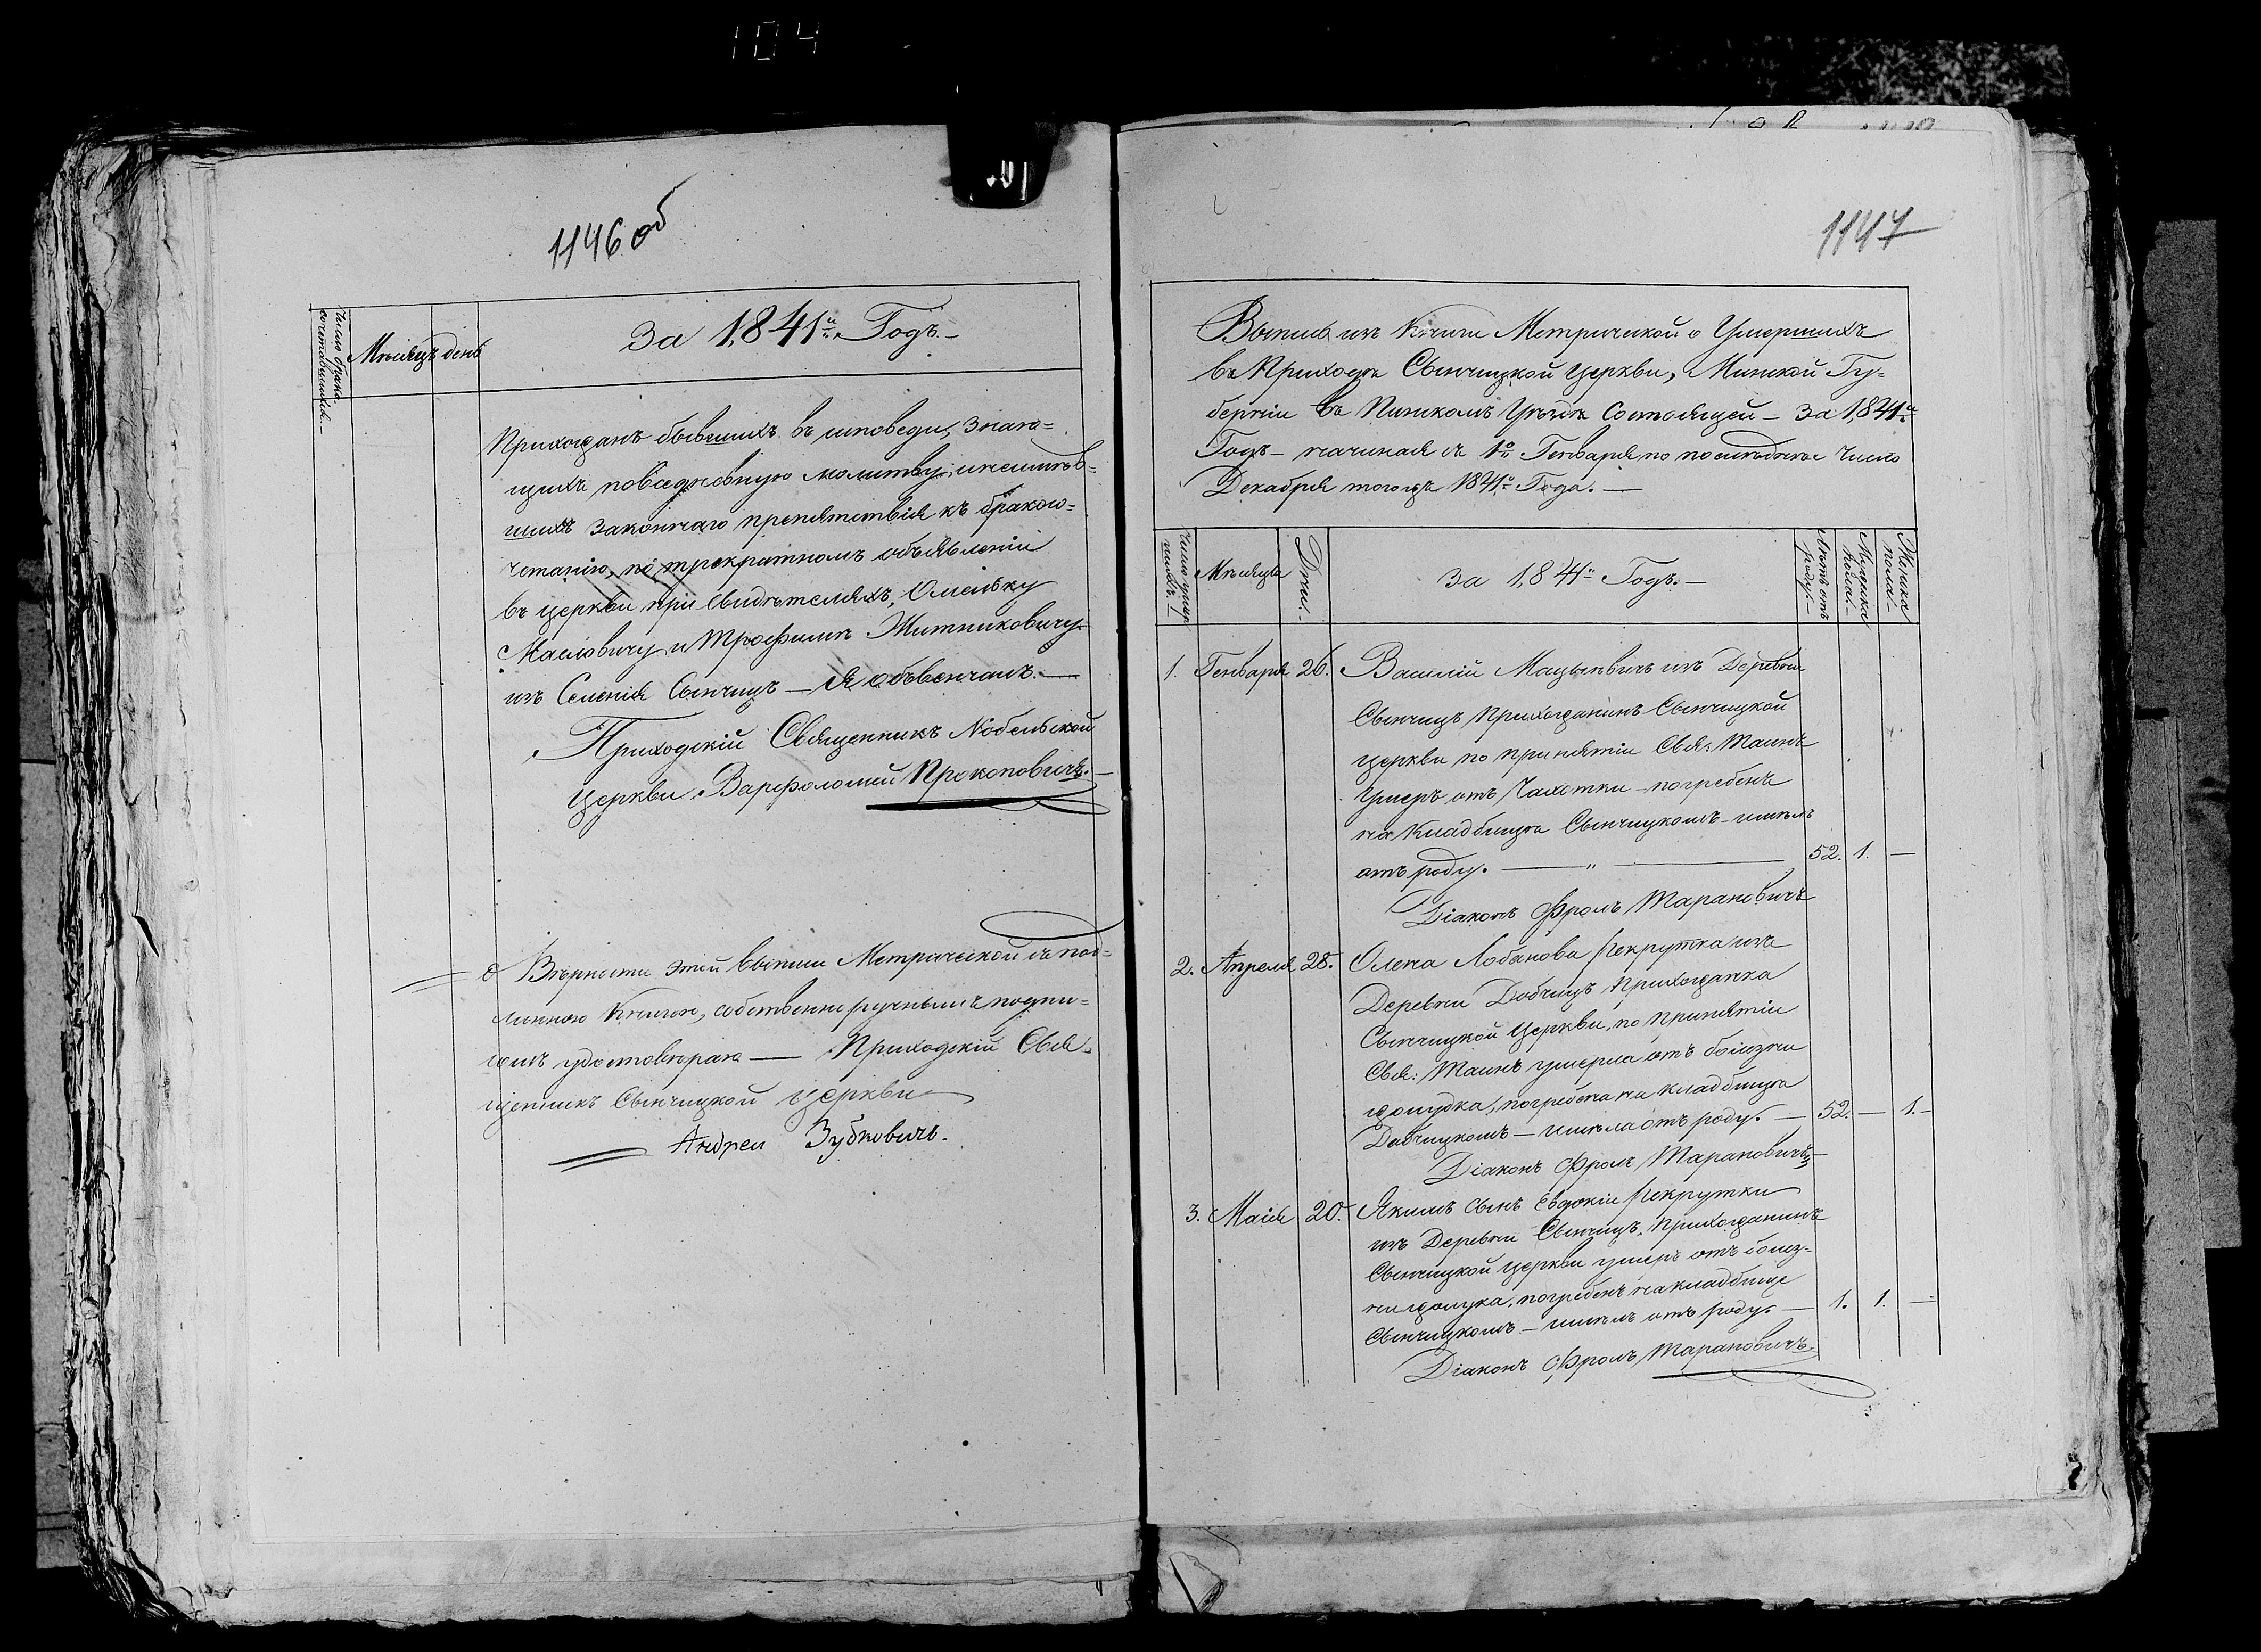 104
1146 об
Число брако-
сочетавшихся.
Мѣсяцъ
день
За 1,841й Годъ.
Прихожанъ бывшихъ въ исповеди, знаю-
щихъ повседневную молитву, и неимѣв-
шихъ законнаго препятствія къ бракосо-
четанію, по трекратномъ объявленіи
въ церкви при Свидѣтеляхъ, Омельку
и Трофимѣ Житниковичу
изъ Селенія Сынчицъ — я обвенчалъ. —
Приходскій Священникъ Нобельской
Церкви Варфоломей Прокоповичъ. —
О Вѣрности этой выписи Метрической съ под-
линною Книгою, собственноручнымъ подпи-
сомъ удостовѣряю — Приходскій Свя-
щенникъ Сынчицкой Церкви
Андрей Зубковичъ.
1147
Выпись изъ Книги Метрической о Умершихъ
въ Приходѣ Сынчицкой Церкви, Минской Гу-
берніи въ Пинскомъ Уѣздѣ Состоящей — За 1,841й
Годъ — начиная съ 1го Генваря по последнее число
Декабря тогожъ 1841го Года. —
Число умер-
шихъ.
Мѣсяцъ
Дни.
За 1,841й Годъ. —
Лѣтъ отъ
роду. —
Мужска
пола. —
Женска
пола. —
1. Генваря 26. Василій Мацькевичъ изъ Деревни
Сынчицъ Прихожанинъ Сынчицкой
Церкви по принятіи Свя: Таинъ
Умеръ отъ Чахотки — погребенъ
на Кладбищѣ Сынчицкомъ — имѣлъ
отъ роду. — „ — 52. 1. —
Діаконъ Фролъ Тарановичъ
2. Апреля 28. Олена Лобанова Рекрутка изъ
Деревни Добчицъ Прихожанка
Сынчицкой Церкви, по принятіи
Свя: Таинъ умерла отъ болезни
жолудка, погребена на кладбищѣ
Добчицкомъ — имѣла отъ роду. — 52. — 1. —
Діаконъ Фролъ Тарановичъ
3. Маія 20. Якимъ сынъ Евдокіи Рекрутки
изъ Деревни Сынчицъ, Прихожанинъ
Сынчицкой церкви умеръ отъ болез-
ни жолудка, погребенъ на кладбище
Сынчицкомъ — имѣлъ отъ роду. — 1. 1. —
Діаконъ Фролъ Тарановичъ.